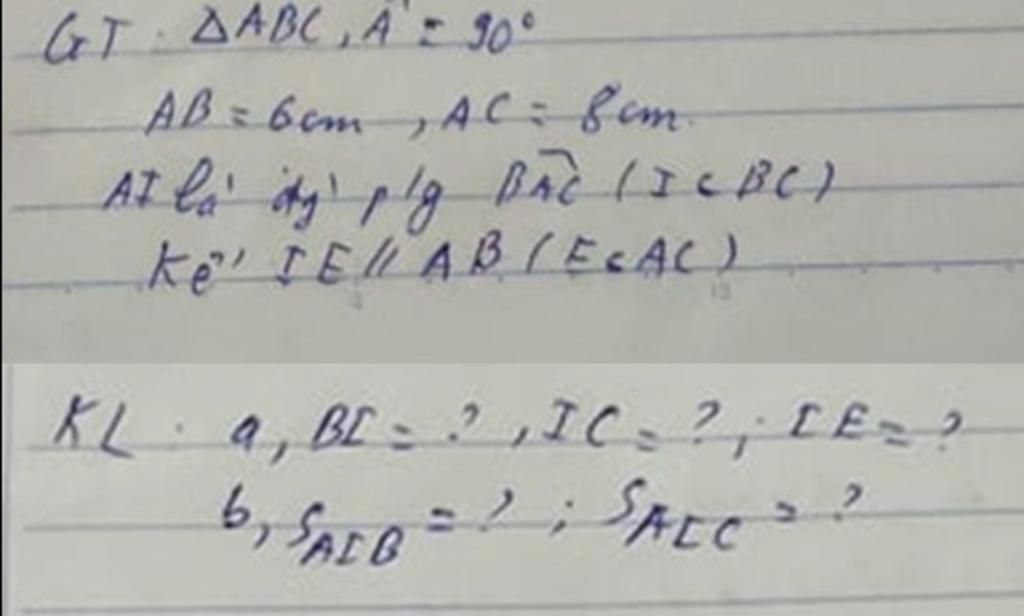 GT : ΔABC, Â = 90°
AB = 6cm, AC = 8cm.
AI là đg p/g BAC (I ∈ BC)
Kẻ IE // AB (E ∈ AC)
KL : a, BI = ? , IC = ? ; IE = ?
b, S_AIB = ? ; S_AIC = ?